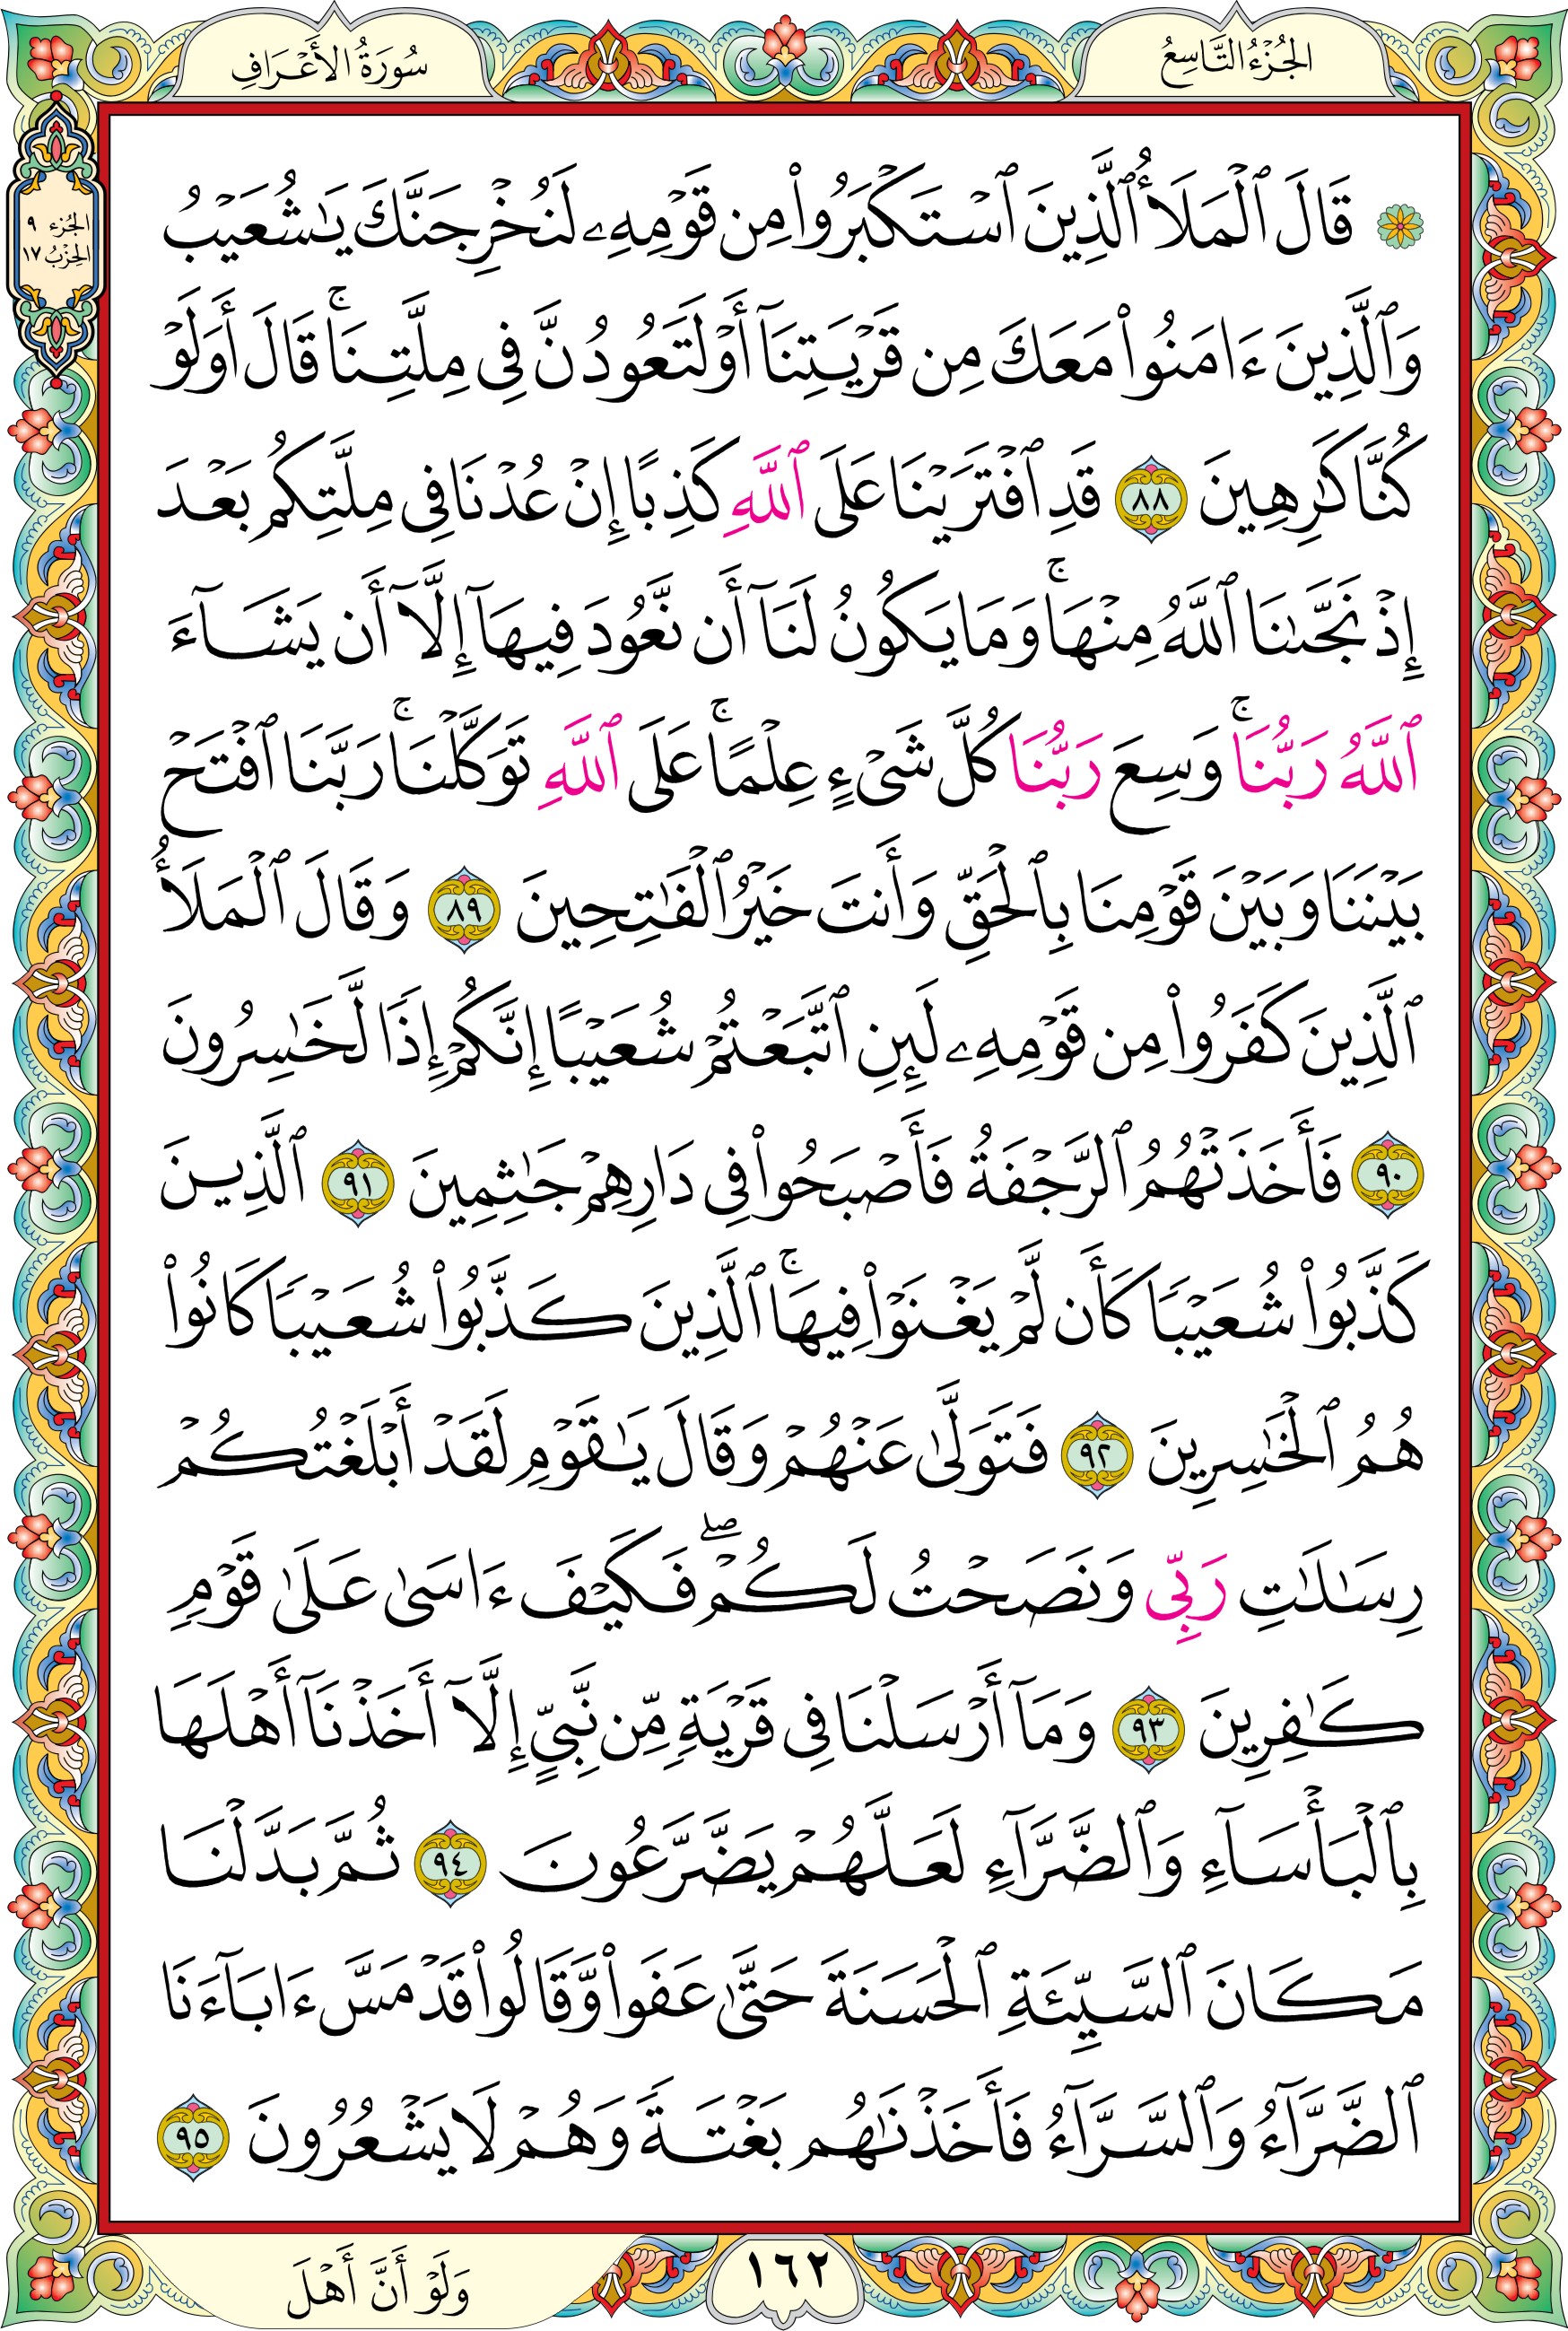 الجُزْءُ التَّاسِعُ
سُورَةُ الأَعْرَافِ
الجُزء ٩
الحِزْبُ ١٧
۞ قَالَ ٱلْمَلَأُ ٱلَّذِينَ ٱسْتَكْبَرُوا۟ مِن قَوْمِهِۦ لَنُخْرِجَنَّكَ يَـٰشُعَيْبُ
وَٱلَّذِينَ ءَامَنُوا۟ مَعَكَ مِن قَرْيَتِنَآ أَوْ لَتَعُودُنَّ فِى مِلَّتِنَا ۚ قَالَ أَوَلَوْ
كُنَّا كَـٰرِهِينَ ٨٨ قَدِ ٱفْتَرَيْنَا عَلَى ٱللَّهِ كَذِبًا إِنْ عُدْنَا فِى مِلَّتِكُم بَعْدَ
إِذْ نَجَّىٰنَا ٱللَّهُ مِنْهَا ۚ وَمَا يَكُونُ لَنَآ أَن نَّعُودَ فِيهَآ إِلَّآ أَن يَشَآءَ
ٱللَّهُ رَبُّنَا ۚ وَسِعَ رَبُّنَا كُلَّ شَىْءٍ عِلْمًا ۚ عَلَى ٱللَّهِ تَوَكَّلْنَا ۚ رَبَّنَا ٱفْتَحْ
بَيْنَنَا وَبَيْنَ قَوْمِنَا بِٱلْحَقِّ وَأَنتَ خَيْرُ ٱلْفَـٰتِحِينَ ٨٩ وَقَالَ ٱلْمَلَأُ
ٱلَّذِينَ كَفَرُوا۟ مِن قَوْمِهِۦ لَئِنِ ٱتَّبَعْتُمْ شُعَيْبًا إِنَّكُمْ إِذًا لَّخَـٰسِرُونَ
٩٠ فَأَخَذَتْهُمُ ٱلرَّجْفَةُ فَأَصْبَحُوا۟ فِى دَارِهِمْ جَـٰثِمِينَ ٩١ ٱلَّذِينَ
كَذَّبُوا۟ شُعَيْبًا كَأَن لَّمْ يَغْنَوْا۟ فِيهَا ۚ ٱلَّذِينَ كَذَّبُوا۟ شُعَيْبًا كَانُوا۟
هُمُ ٱلْخَـٰسِرِينَ ٩٢ فَتَوَلَّىٰ عَنْهُمْ وَقَالَ يَـٰقَوْمِ لَقَدْ أَبْلَغْتُكُمْ
رِسَـٰلَـٰتِ رَبِّى وَنَصَحْتُ لَكُمْ ۖ فَكَيْفَ ءَاسَىٰ عَلَىٰ قَوْمٍ
كَـٰفِرِينَ ٩٣ وَمَآ أَرْسَلْنَا فِى قَرْيَةٍ مِّن نَّبِىٍّ إِلَّآ أَخَذْنَآ أَهْلَهَا
بِٱلْبَأْسَآءِ وَٱلضَّرَّآءِ لَعَلَّهُمْ يَضَّرَّعُونَ ٩٤ ثُمَّ بَدَّلْنَا
مَكَانَ ٱلسَّيِّئَةِ ٱلْحَسَنَةَ حَتَّىٰ عَفَوا۟ وَّقَالُوا۟ قَدْ مَسَّ ءَابَآءَنَا
ٱلضَّرَّآءُ وَٱلسَّرَّآءُ فَأَخَذْنَـٰهُم بَغْتَةً وَهُمْ لَا يَشْعُرُونَ ٩٥
١٦٢
وَلَوْ أَنَّ أَهْلَ